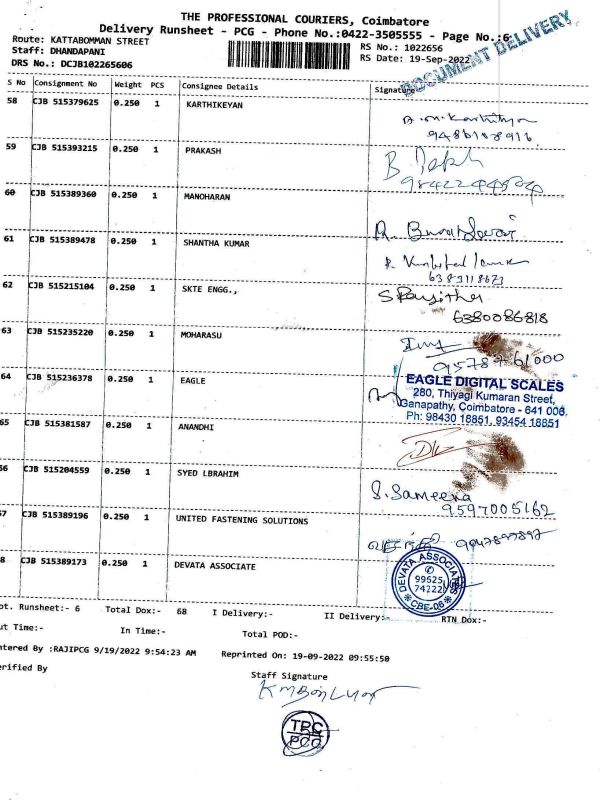 THE PROFESSIONAL COURIERS, Coimbatore
Delivery Runsheet - PCG - Phone No.:0422-3505555 - Page No.:6
Route: KATTABOMMAN STREET
RS No.: 1022656
Staff: DHANDAPANI
RS Date: 19-Sep-2022
DRS No.: DCJB102265606
DOCUMENT DELIVERY
S No Consignment No Weight PCS Consignee Details Signature
58 CJB 515379625 0.250 1 KARTHIKEYAN
59 CJB 515393215 0.250 1 PRAKASH
60 CJB 515389360 0.250 1 MANOHARAN
61 CJB 515389478 0.250 1 SHANTHA KUMAR
6383118673
62 CJB 515215104 0.250 1 SKTE ENGG.,
6380086818
63 CJB 515235220 0.250 1 MOHARASU
95787 61000
64 CJB 515236378 0.250 1 EAGLE
EAGLE DIGITAL SCALES
280, Thiyagi Kumaran Street,
Ganapathy, Coimbatore - 641 006.
Ph: 98430 18851, 93454 18851
65 CJB 515381587 0.250 1 ANANDHI
66 CJB 515204559 0.250 1 SYED LBRAHIM
S. Sameera
9597005162
67 CJB 515389196 0.250 1 UNITED FASTENING SOLUTIONS
8 CJB 515389173 0.250 1 DEVATA ASSOCIATE
DEVATA ASSOCIATES
99525
74222
CBE-06
ot. Runsheet:- 6 Total Dox:- 68 I Delivery:- II Delivery:- RTN Dox:-
ut Time:- In Time:- Total POD:-
ntered By :RAJIPCG 9/19/2022 9:54:23 AM Reprinted On: 19-09-2022 09:55:50
erified By
Staff Signature
TPC
PCG